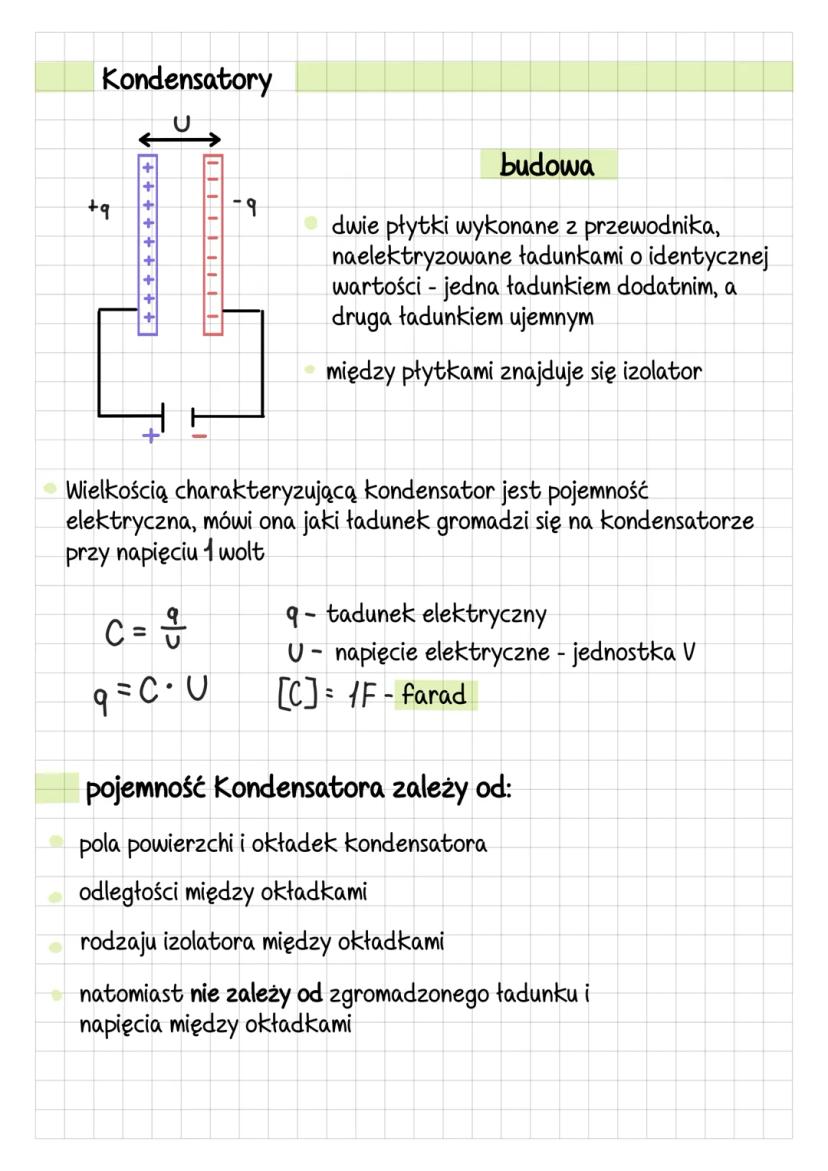 Kondensatory
U
+q
-q
+ + + + + + + + +
- - - - - - - - -
+ -
budowa
dwie płytki wykonane z przewodnika,
naelektryzowane ładunkami o identycznej
wartości - jedna ładunkiem dodatnim, a
druga ładunkiem ujemnym
między płytkami znajduje się izolator
Wielkością charakteryzującą kondensator jest pojemność
elektryczna, mówi ona jaki ładunek gromadzi się na kondensatorze
przy napięciu 1 wolt
C = q/U
q - ładunek elektryczny
U - napięcie elektryczne - jednostka V
q = C · U
[C] = 1F - farad
pojemność Kondensatora zależy od:
pola powierzchi i okładek kondensatora
odległości między okładkami
rodzaju izolatora między okładkami
natomiast nie zależy od zgromadzonego ładunku i
napięcia między okładkami